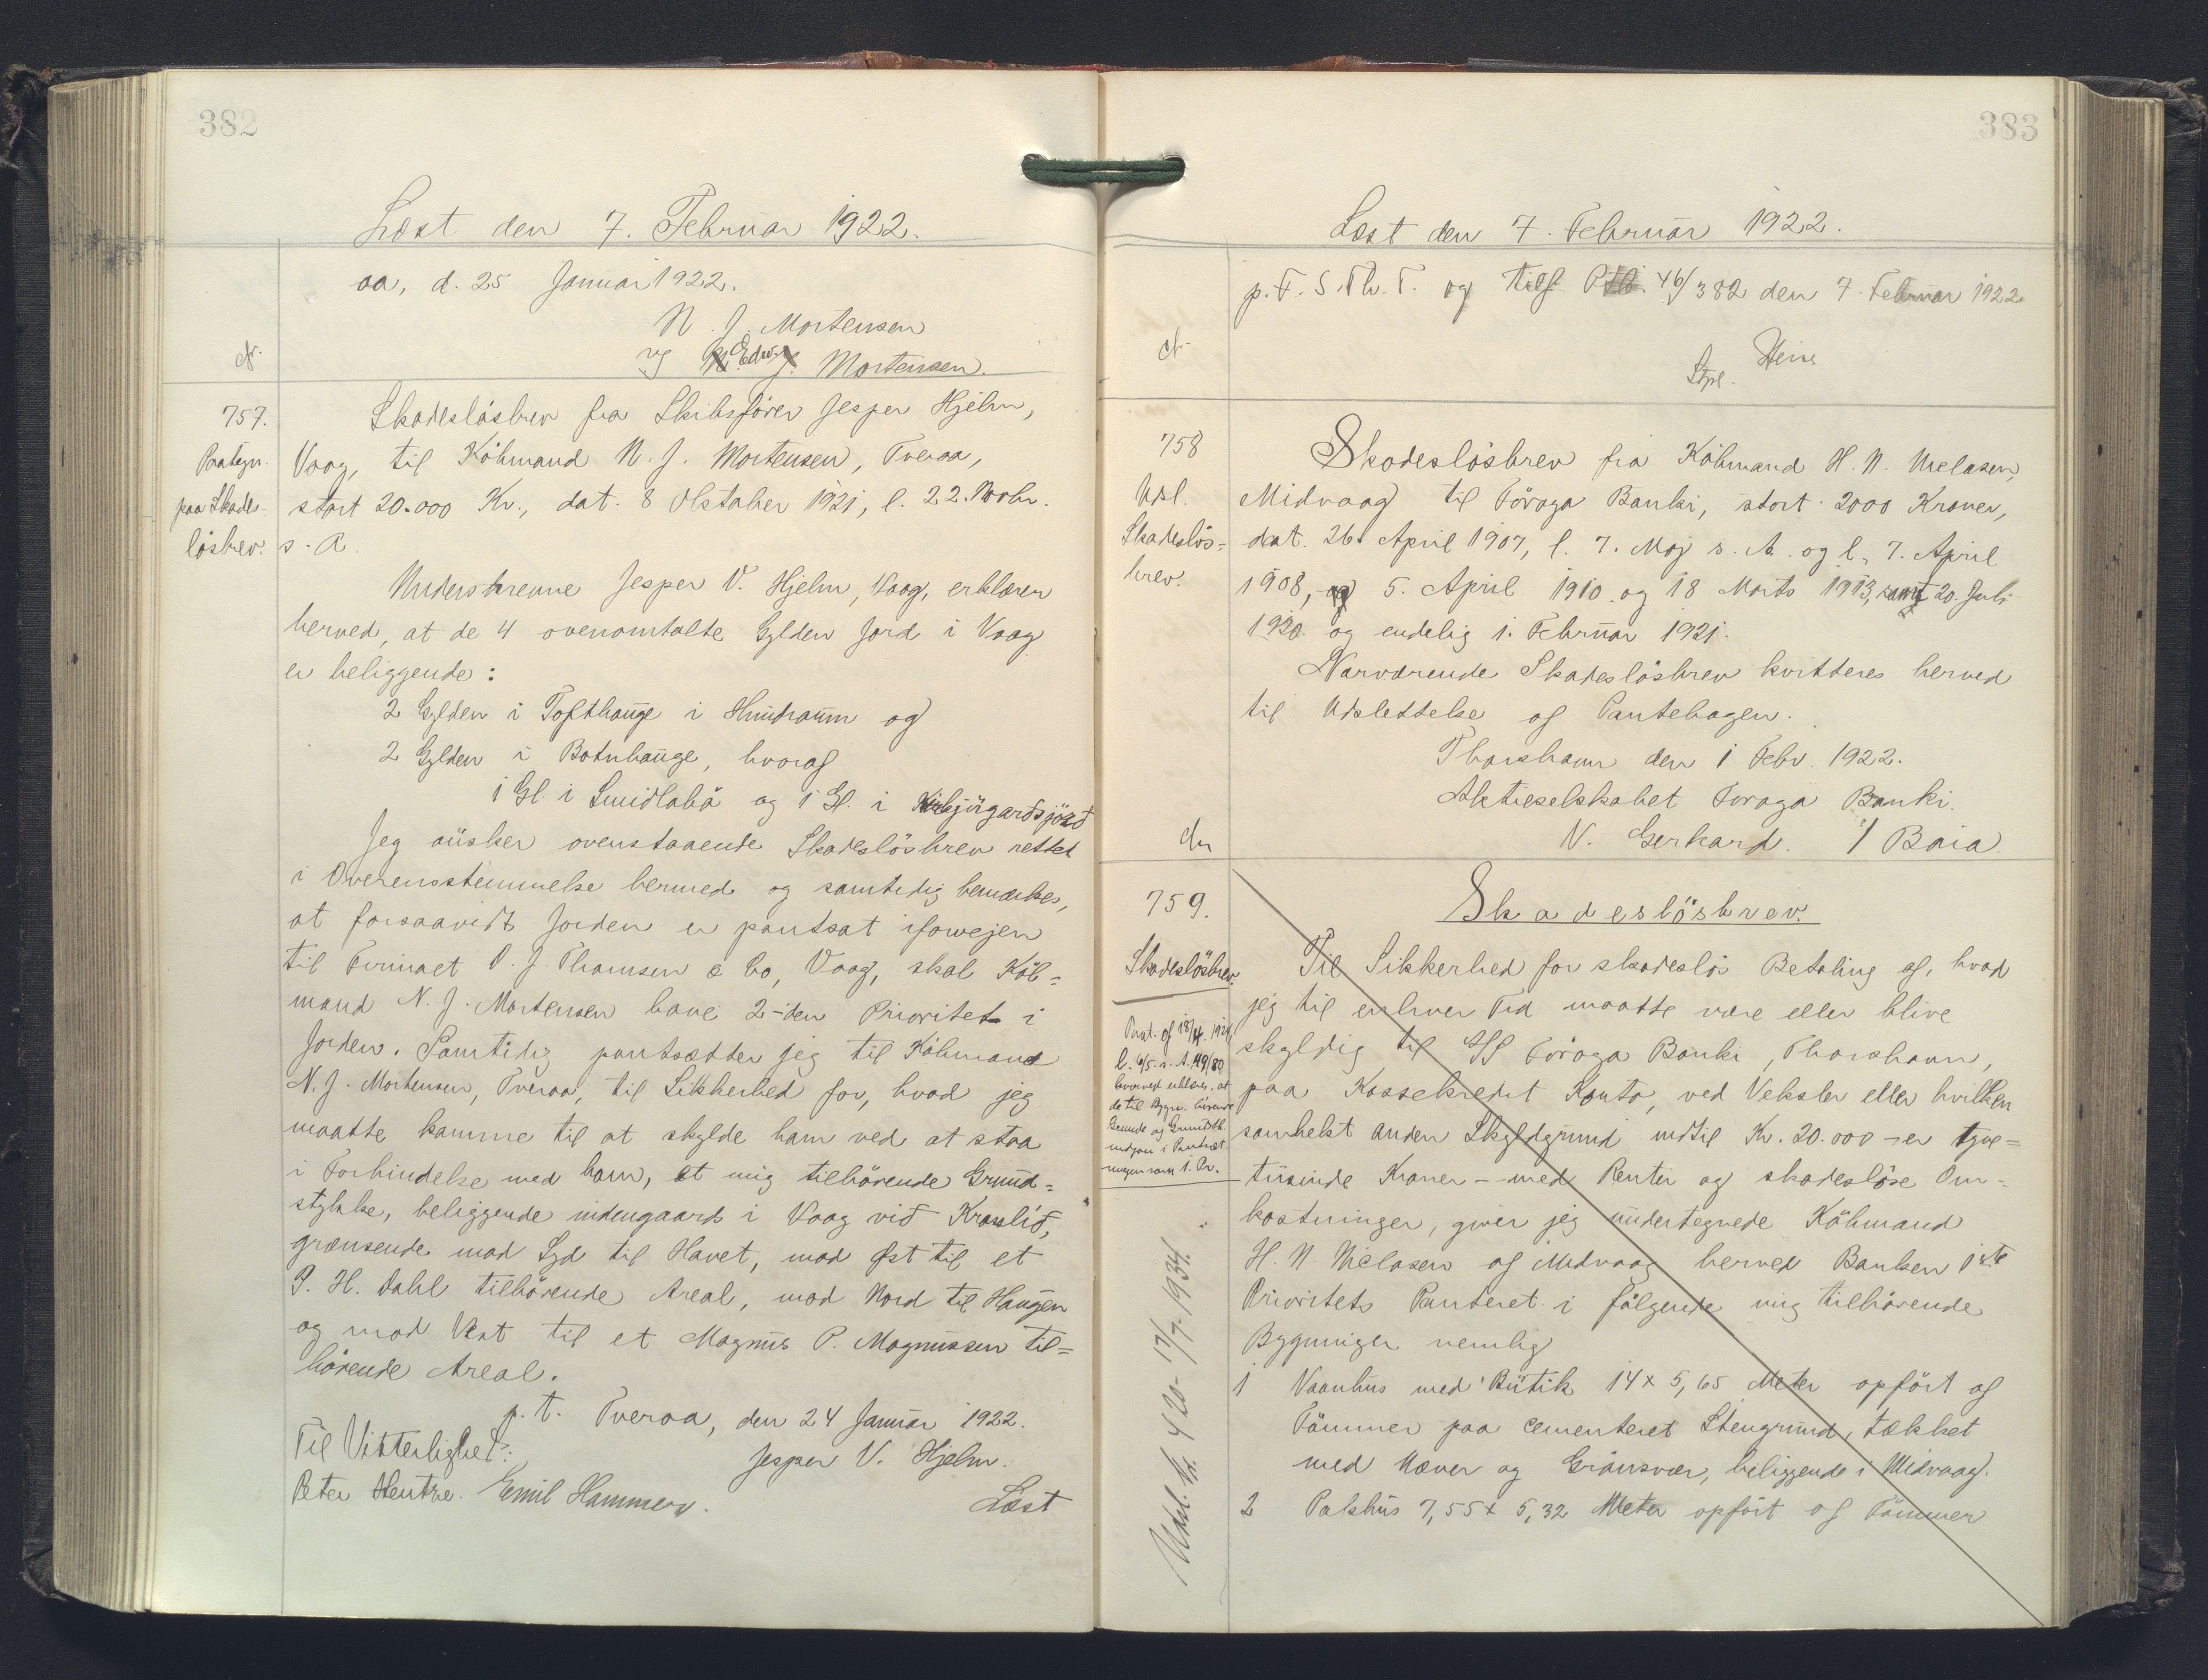 382
Læst den 7. Februar 1922.
aa, d. 25 Januar 1922.
N. J. Mortensen
Mortensen.
757.
Paategn.
paa Skades-
lösbrev.
Skadeslösbrev fra Skibsförer Jesper Hjelm,
Vaag, til Köbmand N. J. Mortensen, Tveraa,
stort 20.000 Kr., dat. 8 Oktober 1921, l. 22. Novbr.
s. A.
Underskrevne Jesper V. Hjelm, Vaag, erklærer
herved, at de 4 ovenomtalte Gylden Jord i Vaag
er beliggende:
2 Gylden i Tofthauge i Hundraum og
2 Gylden i Botnhauge, hvoraf
1 Gl. i Smidlabö og 1 Gl. i Kirkjügardsjörd
Jeg önsker ovenstaaende Skadeslösbrev rettet
i Overensstemmelse hermed og samtidig bemærkes,
at forsaavidt Jorden er pantsat iforvejen
til Firmaet P. J. Thomsen & Co, Vaag, skal Köb=
mand N. J. Mortensen have 2-den Prioritet i
Jorden. Samtidig pantsætter jeg til Köbmand
N. J. Mortensen, Tveraa, til Sikkerhed for, hvad jeg
maatte komme til at skylde ham ved at staa
i Forbindelse med ham, et mig tilhörende Grund=
stykke, beliggende indengaards i Vaag við Kraslið,
grænsende mod Syd til Havet, mod Øst til et
P. H. Dahl tilhörende Areal, mod Nord til Haugen
og mod Vest til et Magnus P. Magnussen til=
hörende Areal.
p. t. Tveraa, den 24 Januar 1922.
Til Vitterlighed:
Jesper V. Hjelm.
Peter Hentze. Emil Hammer.
Læst
383
Læst den 7. Februar 1922.
p. T. S. Th. T. og tilf. 46/382 den 7. Februar 1922
758
Udsl.
Skadeslös=
brev.
Skadeslösbrev fra Köbmand H. N. Nielasen,
Midvaag til Föroya Banki, stort 2000 Kroner,
dat. 26. April 1907, l. 7. Maj s. A. og l. 7. April
1908, og 5. April 1910 og 18 Marts 1913, samt 20. Juli
1920. og endelig 1. Februar 1921.
Nærværende Skadeslösbrev kvitteres herved
til Udslettelse af Pantebogen.
Thorshavn den 1 Febr. 1922.
Aktieselskabet Foroya Banki.
V. Gerhard. / Baia
759.
Skadeslösbrev.
Skadeslösbrev.
Paat. af 18/4. 1924
l. 6/5. s. A. 49/80
hvorved erklæres, at
de til Bygn. hörende
Grunde og Grundstk.
indgaar i Pantsæt-
ningen som 1. Pr.
Udsl. 17/7. 1934.
Til Sikkerhed for skadeslös Betaling af, hvad
jeg til enhver Tid maatte være eller blive
skyldig til A/S Föroya Banki, Thorshavn,
paa Kassekredit Konto, ved Veksler eller hvilken
somhelst anden Skyldgrund indtil Kr. 20.000 - er tyve=
tusinde Kroner - med Renter og skadeslöse Om-
kostninger, giver jeg undertegnede Köbmand
H. N. Nielasen af Midvaag herved Banken 1ste
Prioritets Panteret i fölgende mig tilhörende
Bygninger nemlig
1 Vaanhus med Butik 14 x 5,65 Meter opfört af
Tömmer paa cementeret Stengrund, tækket
med Næver og Grönsvær, beliggende i Midvaag.
2 Pakhus 7,55 x 5,32 Meter opfört af Tömmer